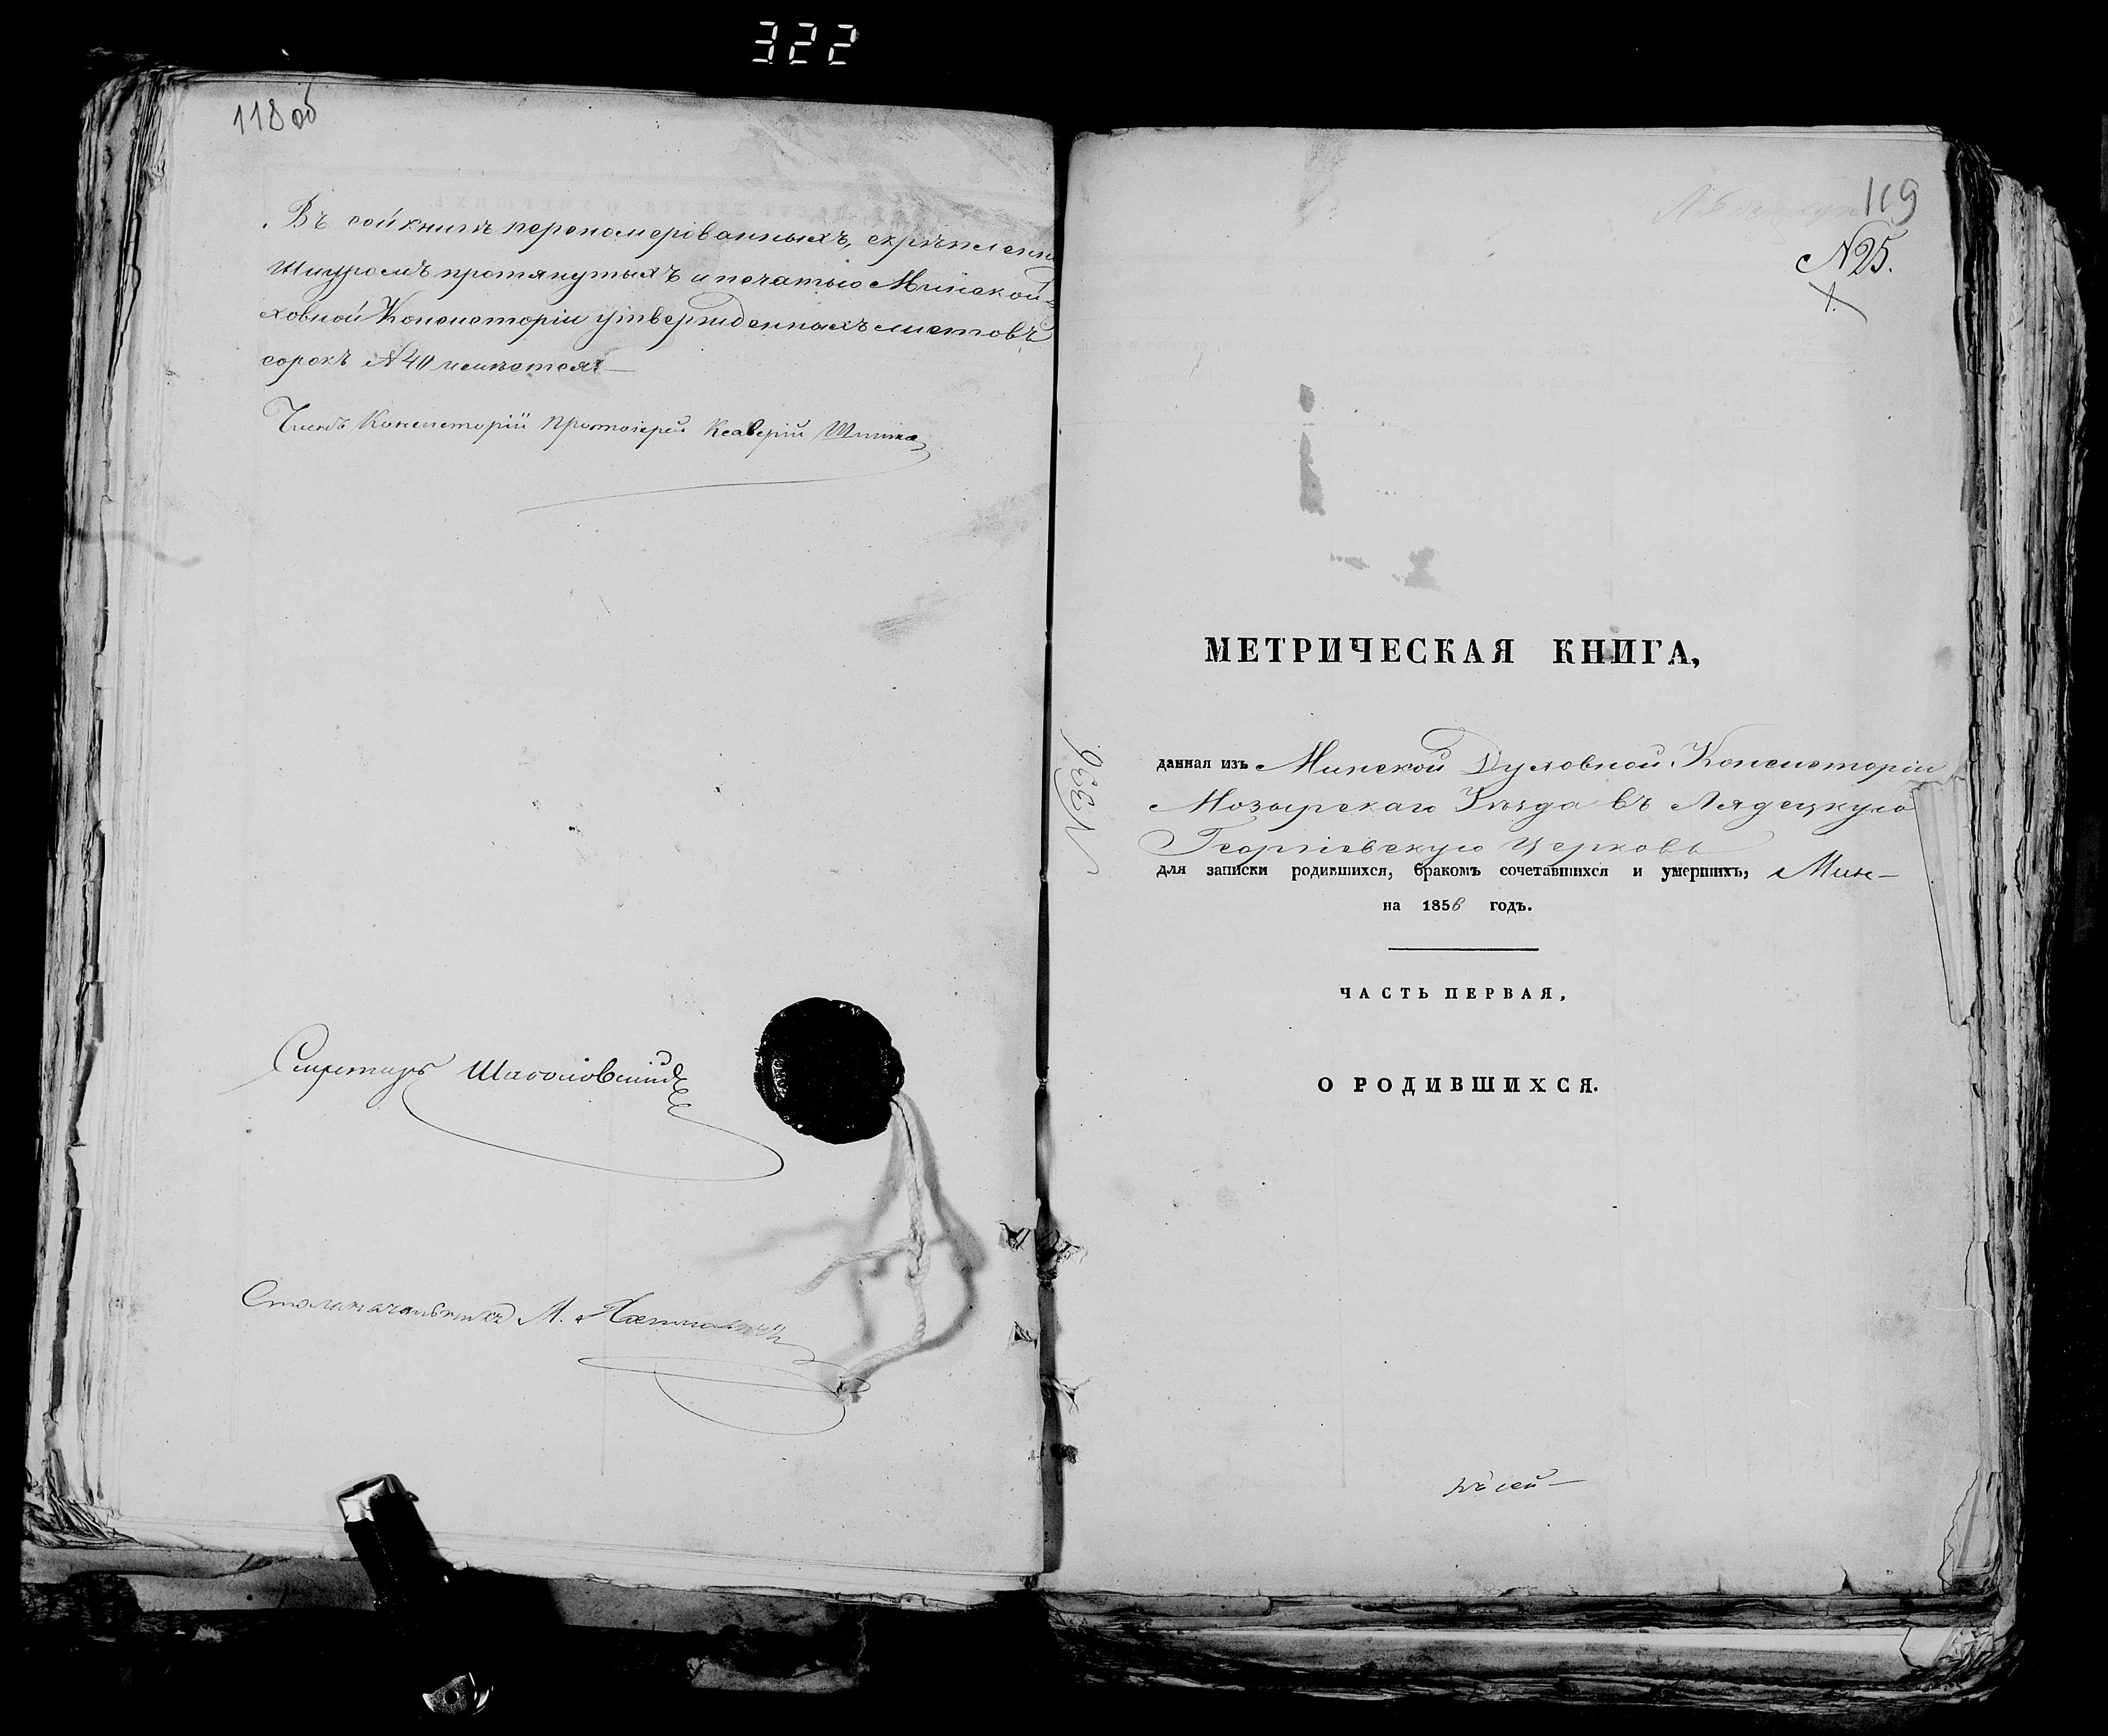 322
118 об
Въ сей книгѣ перенумерованныхъ, скрѣпленн
Шнуромъ протянутыхъ и печатью Минской
ховной Консисторіи утвержденныхъ листовъ
сорокъ №40 имѣются
Членъ Консисторіи Протоіерей Ксаверій
Секретарь
Столоначальникъ М.
119
№25.
1.
МЕТРИЧЕСКАЯ КНИГА,
№336
данная изъ Минской Духовной Консисторіи
Мозырскаго Уѣзда въ Лядецкую
Георгіевскую Церковь
для записки родившихся, бракомъ сочетавшихся и умершихъ, Мин-
на 1856 годъ.
ЧАСТЬ ПЕРВАЯ,
О РОДИВШИХСЯ.
Къ сей